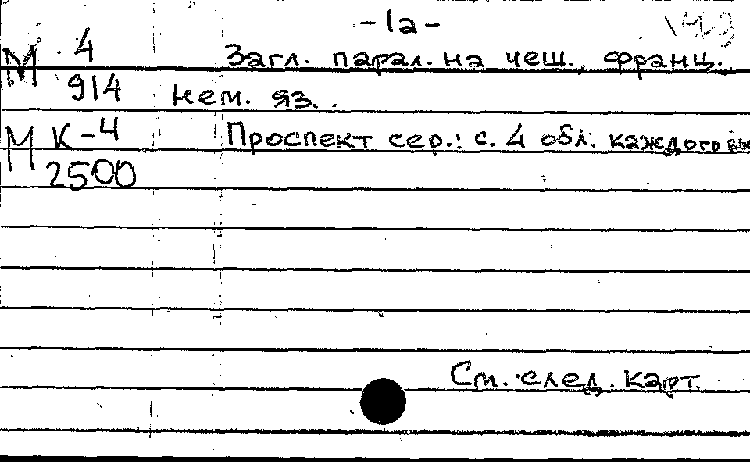 -1а-
М 4 Загл. парал. на чеш., франц.,
914 нем. яз.
М К-4 Проспект сер.: с. 4 обл. каждого
2500
См. след. карт